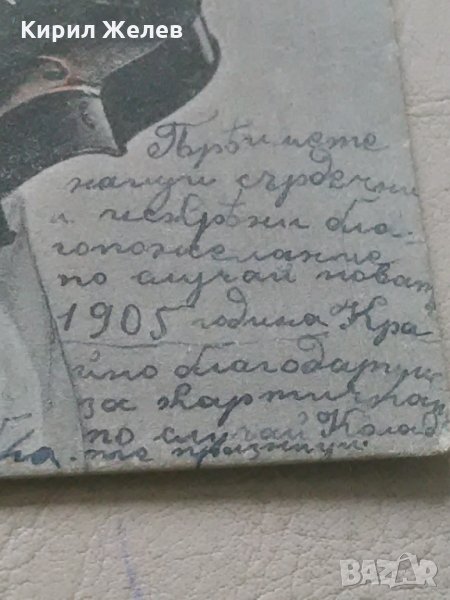 Кирил Желев
Приймете
нашѣи сърдечни
и искрѣни бла-
гопожелание
по случай новата
1905 година Кра-
йно благодариме
за картичката
по случай Коледн
ка. те празници.
BAZAR